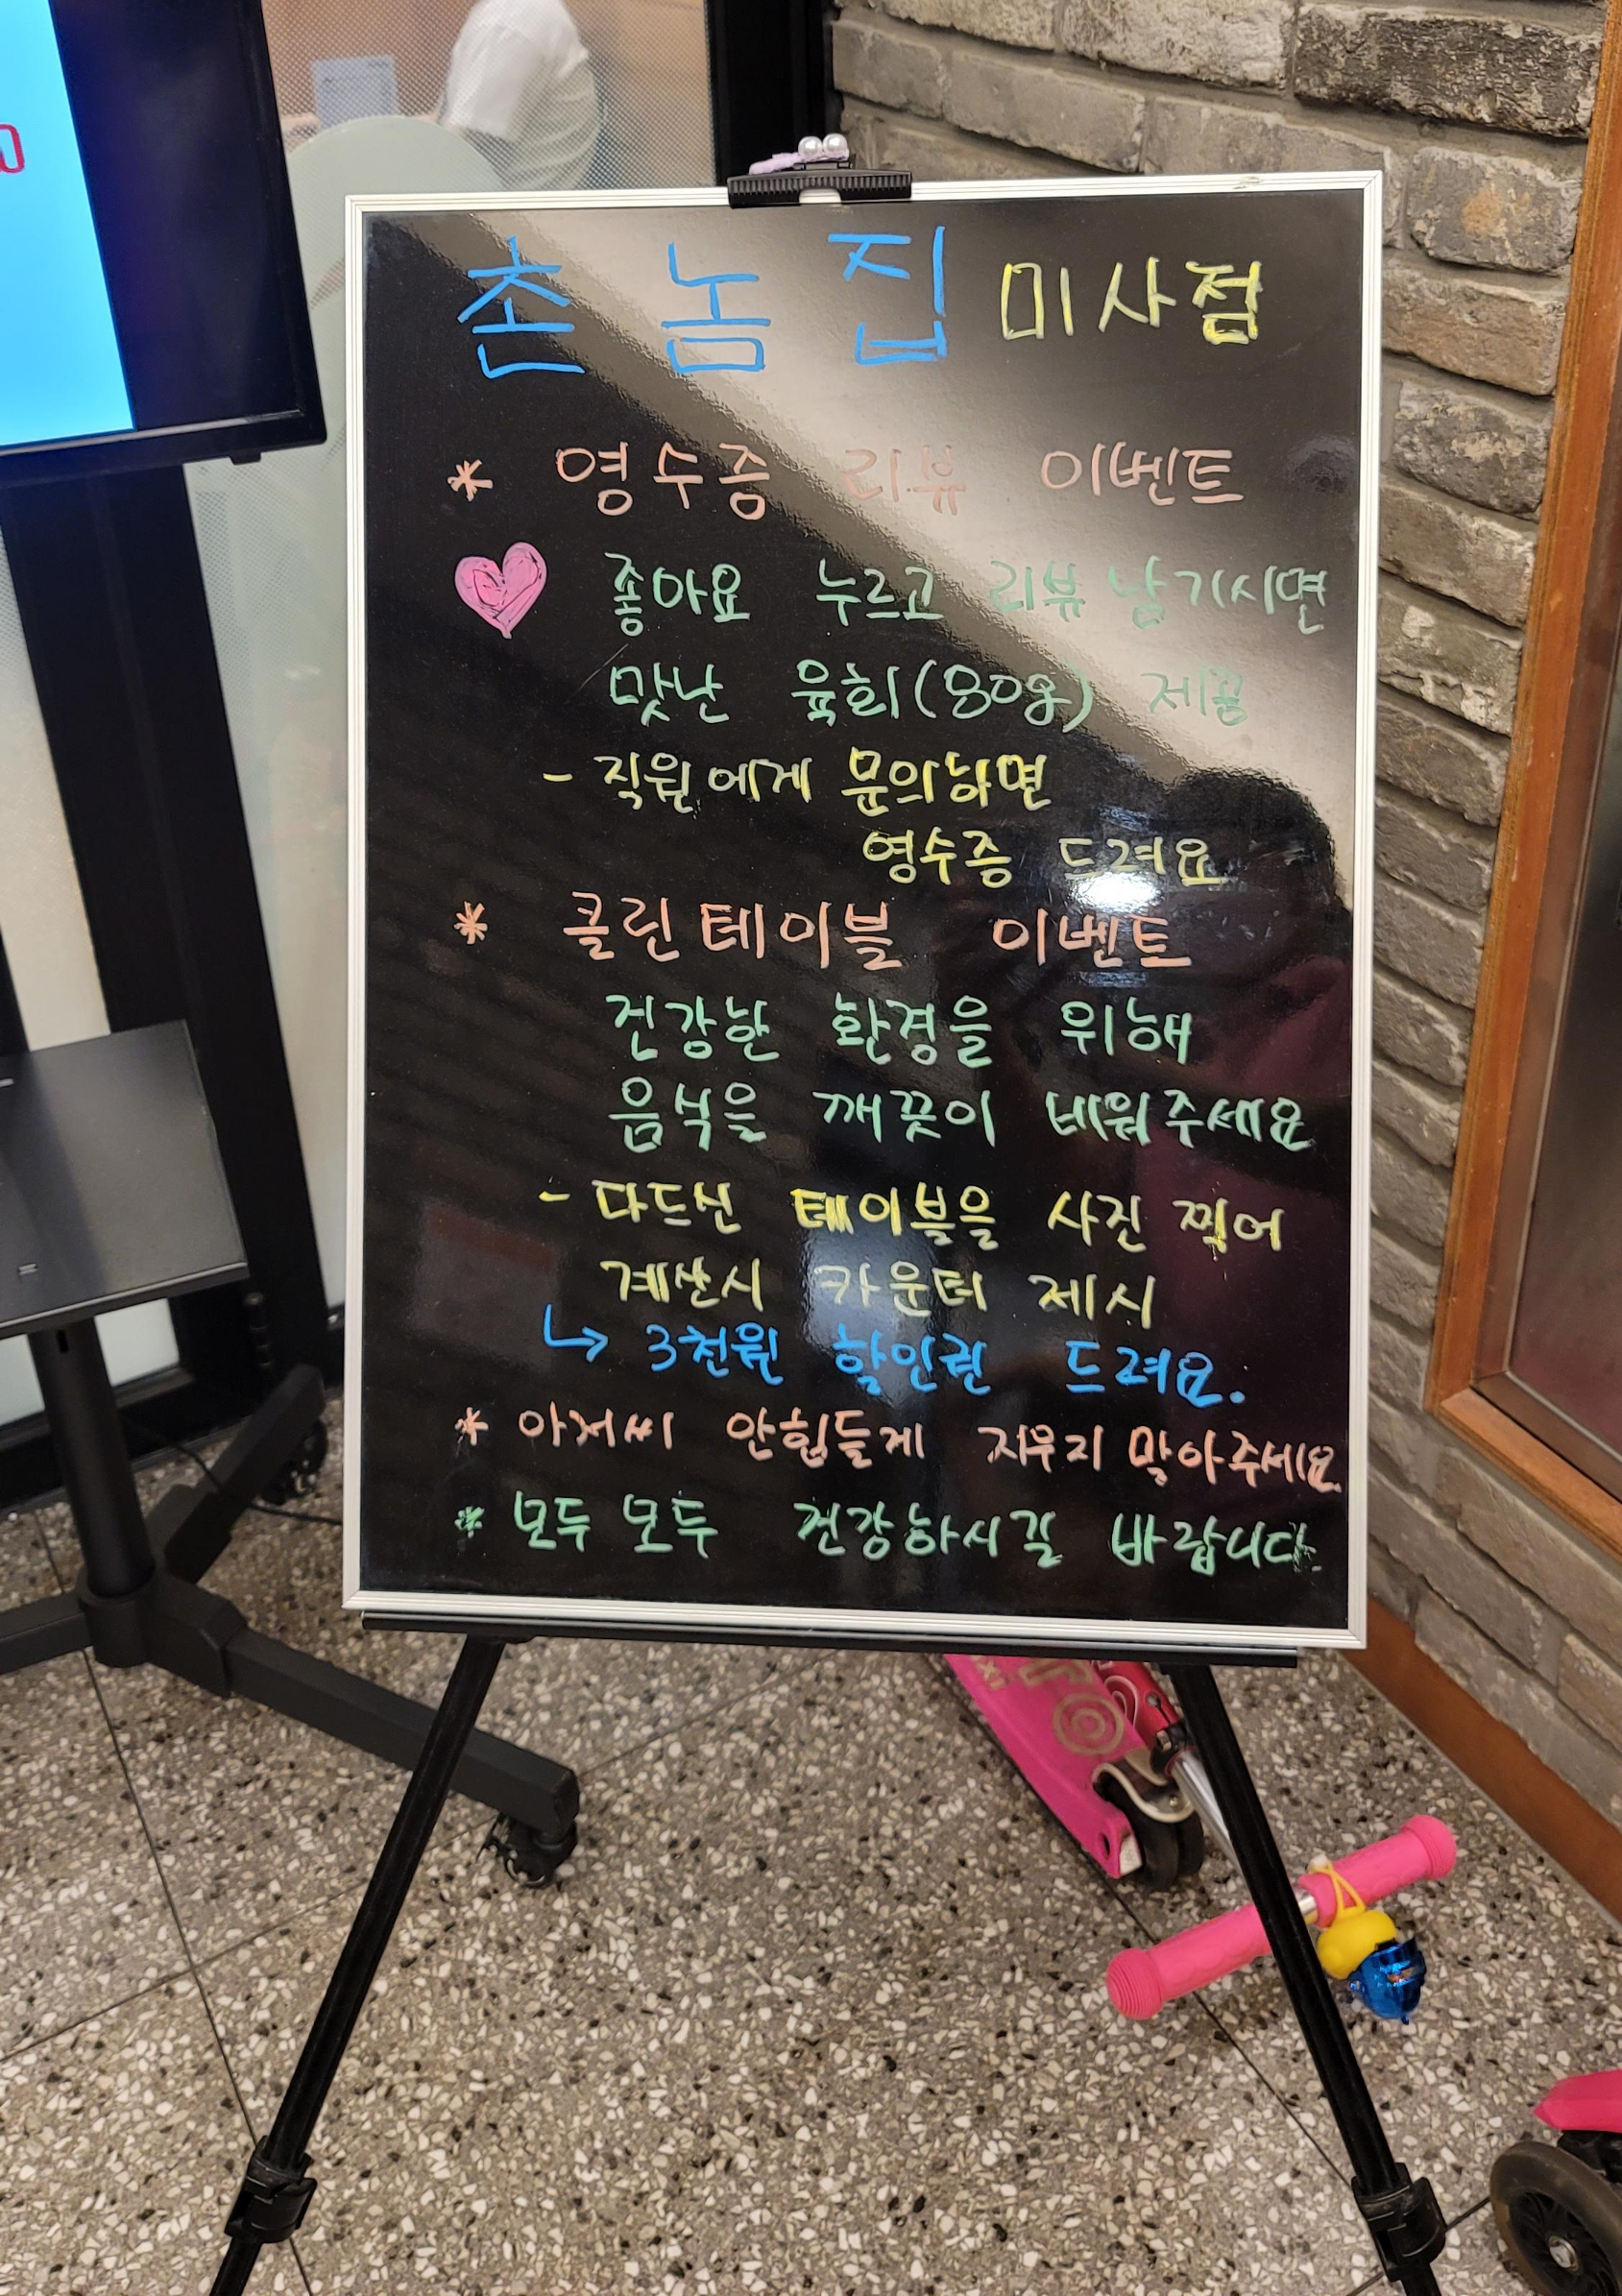 촌놈집 미사점
* 영수증 리뷰 이벤트
좋아요 누르고 리뷰 남기시면
맛난 육회(80g) 제공
- 직원에게 문의하면
영수증 드려요
* 클린테이블 이벤트
건강한 환경을 위해
음식을 깨끗이 비워주세요
- 다드신 테이블을 사진 찍어
계산시 카운터 제시
↳ 3천원 할인권 드려요.
* 아저씨 안힘들게 지우지 말아주세요
* 모두모두 건강하시길 바랍니다.